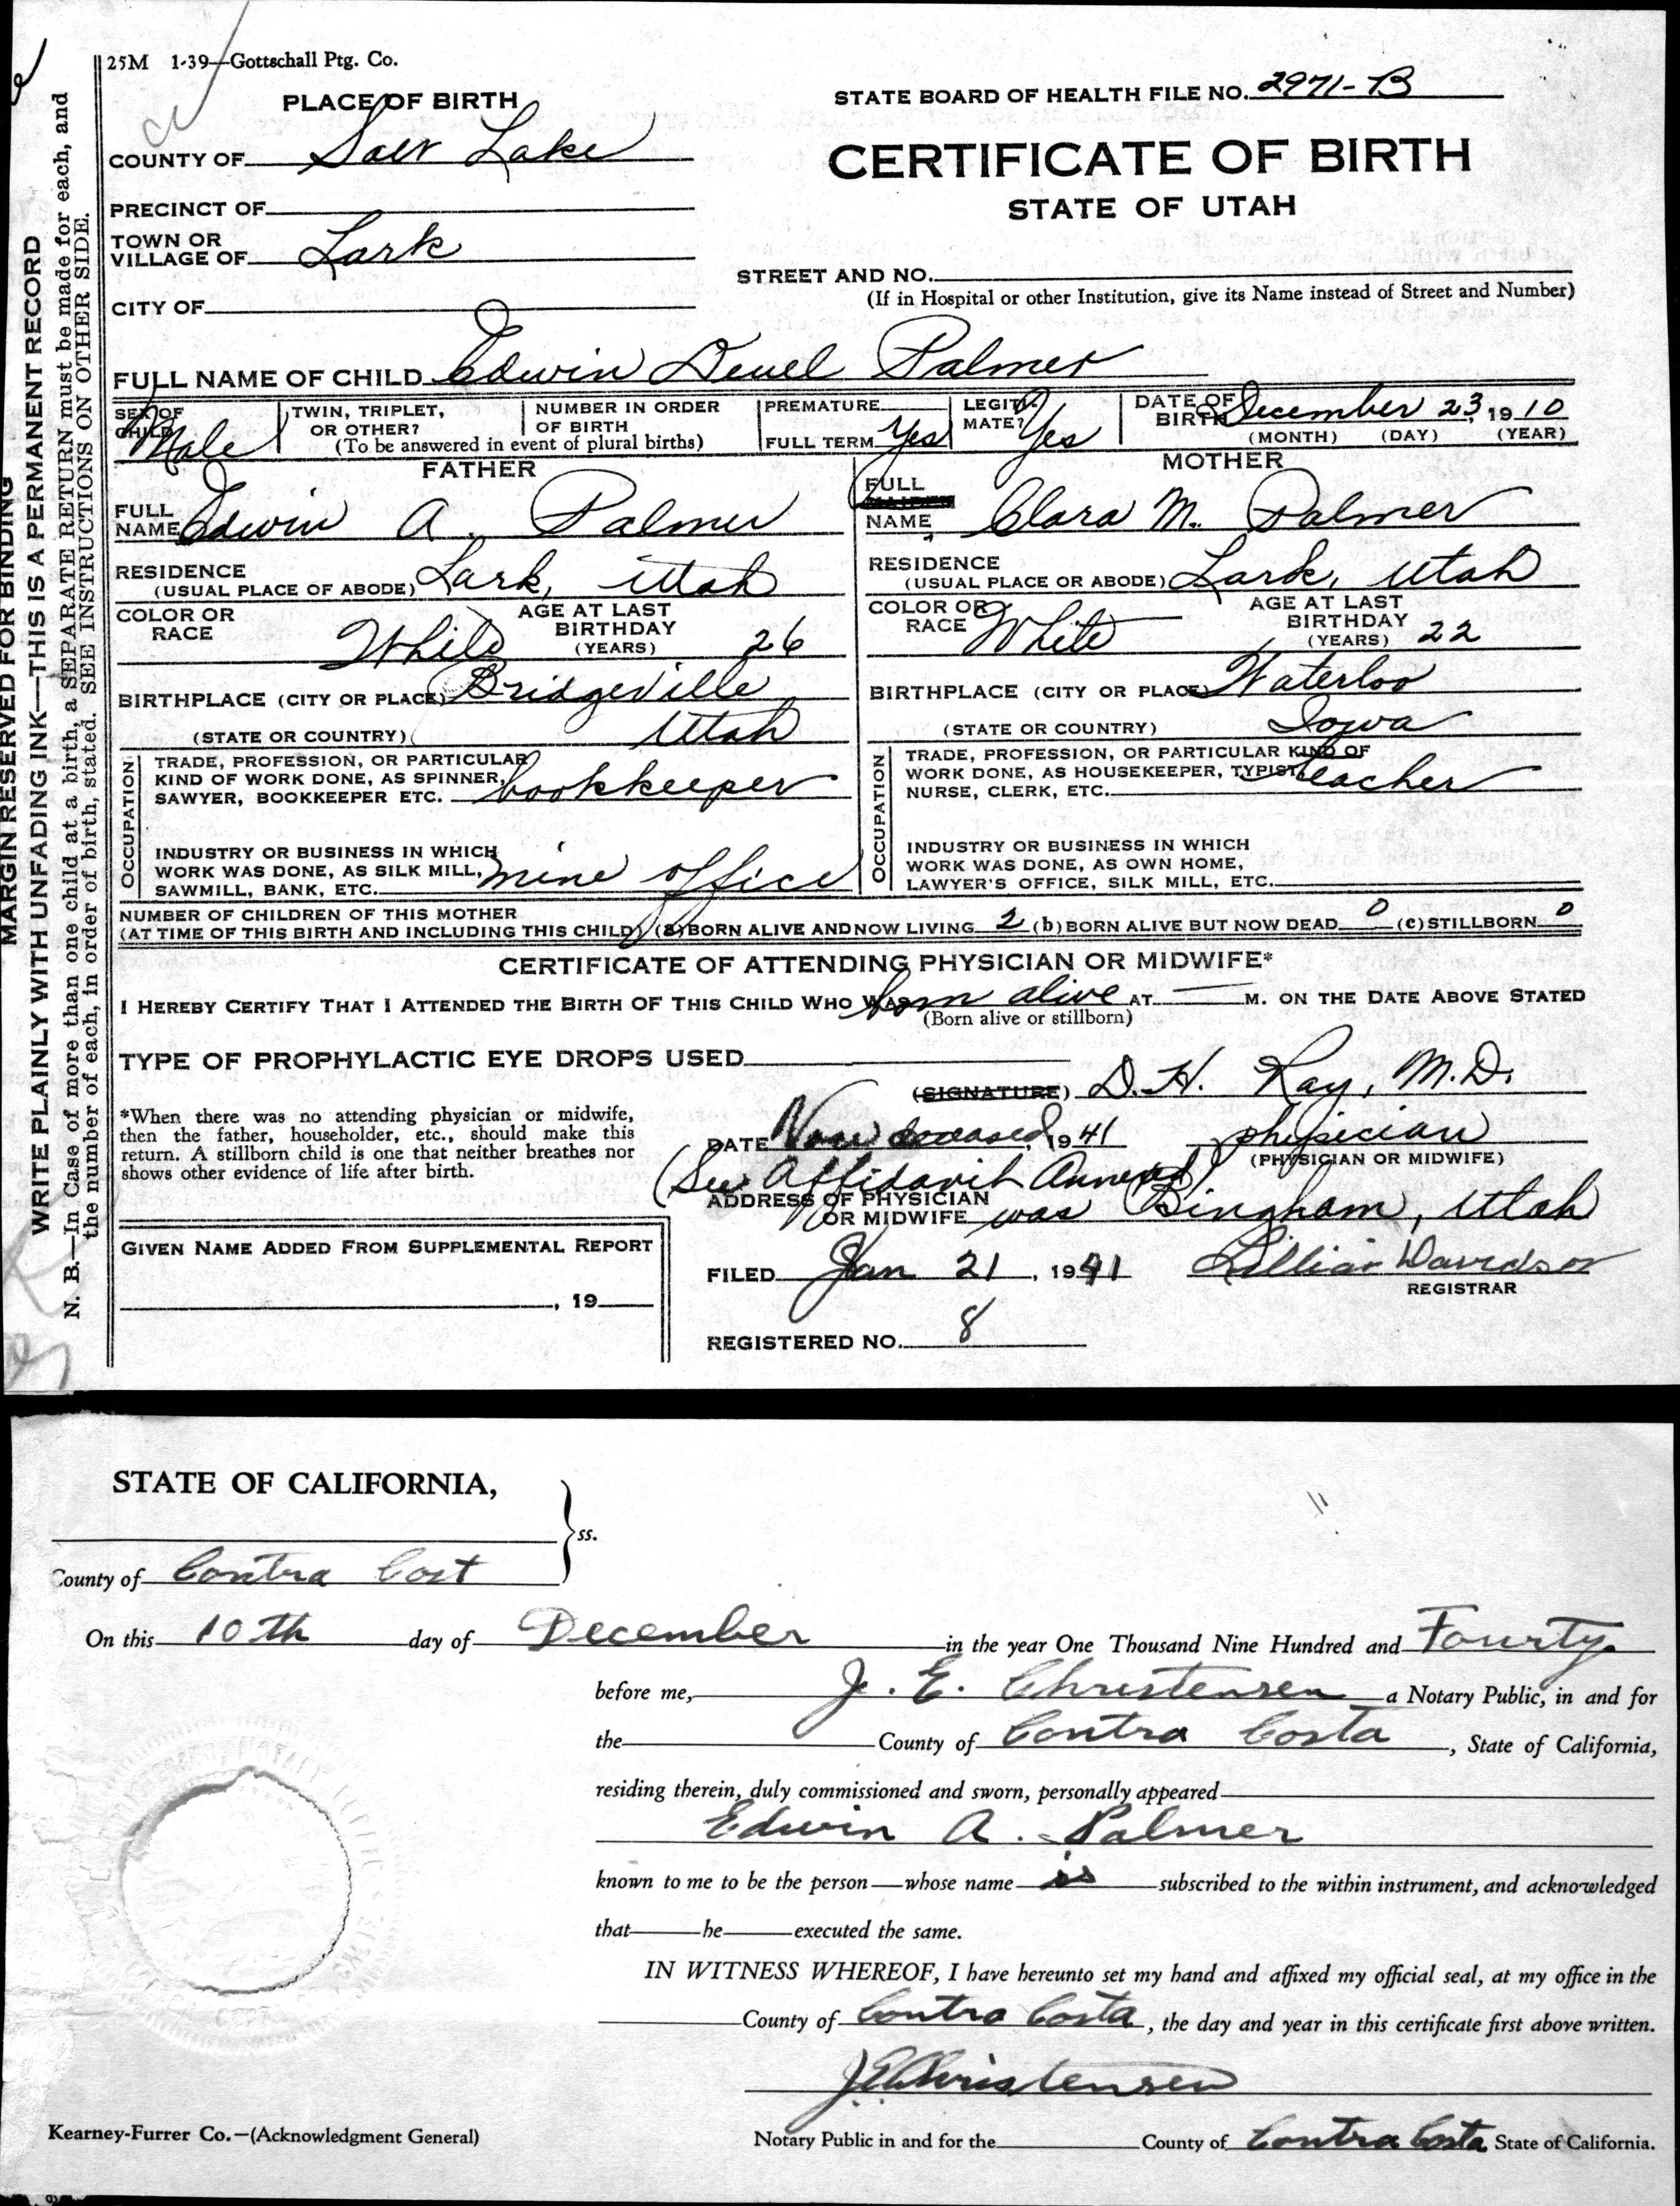 25M 1-39—Gottschall Ptg. Co.
PLACE OF BIRTH
STATE BOARD OF HEALTH FILE NO. 2971-B
COUNTY OF Salt Lake
CERTIFICATE OF BIRTH
STATE OF UTAH
PRECINCT OF
TOWN OR
VILLAGE OF Lark
STREET AND NO.
(If in Hospital or other Institution, give its Name instead of Street and Number)
CITY OF
FULL NAME OF CHILD Edwin Deuel Palmer
SEX OF
CHILD Male
TWIN, TRIPLET,
OR OTHER?
NUMBER IN ORDER
OF BIRTH
(To be answered in event of plural births)
PREMATURE
FULL TERM Yes
LEGITI-
MATE? Yes
DATE OF
BIRTH December 23, 1910
(MONTH) (DAY) (YEAR)
FATHER
FULL
NAME Edwin A. Palmer
RESIDENCE
(USUAL PLACE OF ABODE) Lark, Utah
COLOR OR
RACE White
AGE AT LAST
BIRTHDAY
(YEARS) 26
BIRTHPLACE (CITY OR PLACE) Bridgeville
(STATE OR COUNTRY) Utah
OCCUPATION
TRADE, PROFESSION, OR PARTICULAR
KIND OF WORK DONE, AS SPINNER,
SAWYER, BOOKKEEPER ETC. bookkeeper
INDUSTRY OR BUSINESS IN WHICH
WORK WAS DONE, AS SILK MILL,
SAWMILL, BANK, ETC. mine office
MOTHER
FULL
MAIDEN
NAME Clara M. Palmer
RESIDENCE
(USUAL PLACE OR ABODE) Lark, Utah
COLOR OR
RACE White
AGE AT LAST
BIRTHDAY
(YEARS) 22
BIRTHPLACE (CITY OR PLACE) Waterloo
(STATE OR COUNTRY) Iowa
OCCUPATION
TRADE, PROFESSION, OR PARTICULAR KIND OF
WORK DONE, AS HOUSEKEEPER, TYPIST,
NURSE, CLERK, ETC. teacher
INDUSTRY OR BUSINESS IN WHICH
WORK WAS DONE, AS OWN HOME,
LAWYER'S OFFICE, SILK MILL, ETC.
NUMBER OF CHILDREN OF THIS MOTHER
(AT TIME OF THIS BIRTH AND INCLUDING THIS CHILD) (a) BORN ALIVE AND NOW LIVING 2 (b) BORN ALIVE BUT NOW DEAD 0 (c) STILLBORN 0
CERTIFICATE OF ATTENDING PHYSICIAN OR MIDWIFE*
I HEREBY CERTIFY THAT I ATTENDED THE BIRTH OF THIS CHILD WHO WAS born alive AT — M. ON THE DATE ABOVE STATED
(Born alive or stillborn)
TYPE OF PROPHYLACTIC EYE DROPS USED
(SIGNATURE) D. H. Ray, M.D.
*When there was no attending physician or midwife,
then the father, householder, etc., should make this
return. A stillborn child is one that neither breathes nor
shows other evidence of life after birth.
DATE Now deceased, 1941 physician
(PHYSICIAN OR MIDWIFE)
(See Affidavit Annexed)
ADDRESS OF PHYSICIAN
OR MIDWIFE was Bingham, Utah
GIVEN NAME ADDED FROM SUPPLEMENTAL REPORT
, 19
FILED Jan 21, 1941 Lillian Davidson
REGISTRAR
REGISTERED NO. 8
MARGIN RESERVED FOR BINDING
WRITE PLAINLY WITH UNFADING INK—THIS IS A PERMANENT RECORD
N. B.—In Case of more than one child at a birth, a SEPARATE RETURN must be made for each, and
the number of each, in order of birth, stated. SEE INSTRUCTIONS ON OTHER SIDE.
STATE OF CALIFORNIA,
ss.
County of Contra Cost
On this 10th day of December in the year One Thousand Nine Hundred and Fourty
before me, J. E. Christensen a Notary Public, in and for
the County of Contra Costa, State of California,
residing therein, duly commissioned and sworn, personally appeared
Edwin A. Palmer
known to me to be the person—whose name is subscribed to the within instrument, and acknowledged
that he executed the same.
IN WITNESS WHEREOF, I have hereunto set my hand and affixed my official seal, at my office in the
County of Contra Costa, the day and year in this certificate first above written.
J E Christensen
Kearney-Furrer Co.—(Acknowledgment General)
Notary Public in and for the County of Contra Costa State of California.